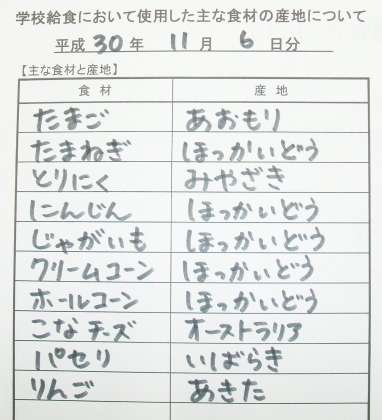 学校給食において使用した主な食材の産地について
平成 30 年 11 月 6 日分
【主な食材と産地】
食材 産地
たまご あおもり
たまねぎ ほっかいどう
とりにく みやざき
にんじん ほっかいどう
じゃがいも ほっかいどう
クリームコーン ほっかいどう
ホールコーン ほっかいどう
こなチーズ オーストラリア
パセリ いばらき
りんご あきた